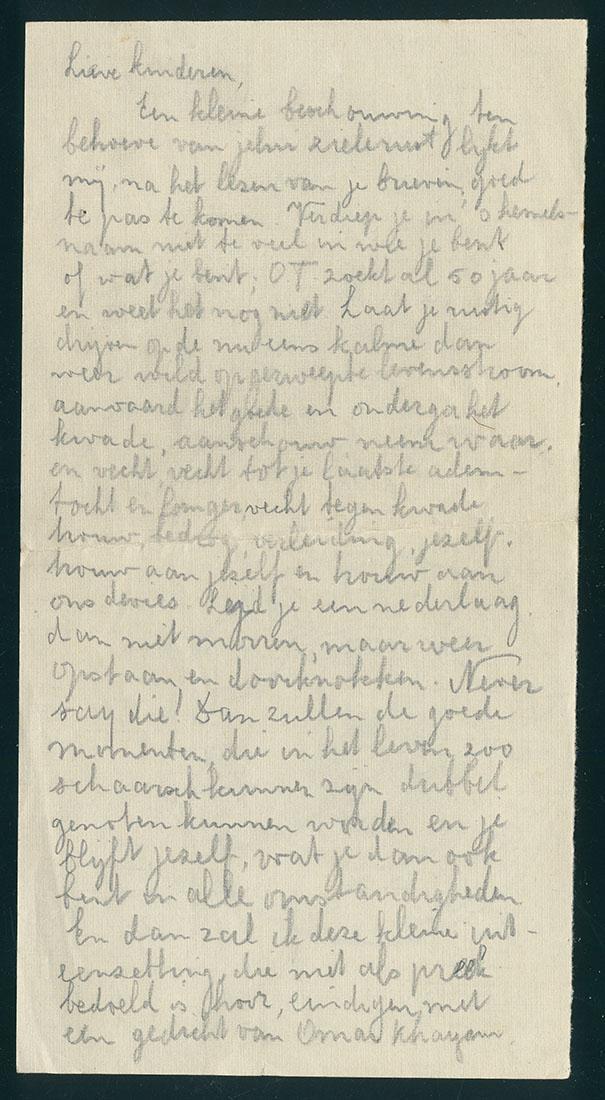 Lieve kinderen,
Een kleine beschouwing ten
behoeve van jelui zielerust lijkt
mij, na het lezen van je brieven, goed
te pas te komen. Verdiep je in 's hemels-
naam niet te veel in wie je bent
of wat je bent; OT zoekt al 50 jaar
en weet het nog niet. Laat je rustig
drijven op de nu eens kalme dan
weer wild opgezweepte levensstroom,
aanvaard het goede en onderga het
kwade, aanschouw neem waar,
en vecht, vecht tot je laatste adem-
tocht en longer, vecht tegen kwade
trouw, bedrog, verleiding, jezelf.
trouw aan jezelf en trouw aan
ons devies. Lejd je een nederlaag
dan niet morren, maar weer
opstaan, en doorknokken. Never
say die! Dan zullen de goede
momenten, die in het leven zoo
schaarsch kunnen zijn dubbel
genoten kunnen worden en je
blijft jezelf, wat je dan ook
bent in alle omstandigheden
En dan zal ik deze kleine uit-
eenzetting, die niet als preek
bedoeld is, hoor, eindigen met
een gedicht van Omar Khayam.